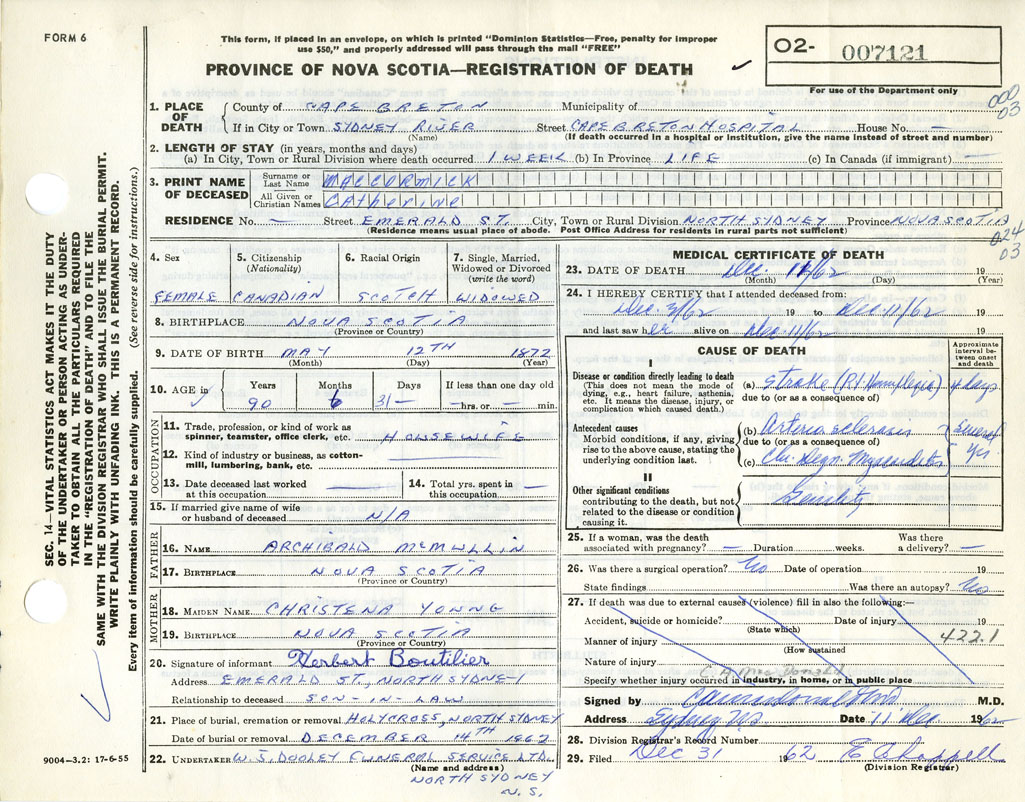 FORM 6
This form, if placed in an envelope, on which is printed "Dominion Statistics—Free, penalty for improper
use $50," and properly addressed will pass through the mail "FREE"
PROVINCE OF NOVA SCOTIA—REGISTRATION OF DEATH ✓
02- 007121
For use of the Department only
000
03
1. PLACE OF DEATH
County of CAPE BRETON Municipality of
If in City or Town SYDNEY RIVER Street CAPE BRETON HOSPITAL House No. —
(Name) (If death occurred in a hospital or institution, give the name instead of street and number)
2. LENGTH OF STAY (in years, months and days)
(a) In City, Town or Rural Division where death occurred 1 WEEK (b) In Province LIFE (c) In Canada (if immigrant) —
3. PRINT NAME OF DECEASED
Surname or Last Name MACCORMICK
All Given or Christian Names CAtherine
RESIDENCE No. — Street EMERALD ST. City, Town or Rural Division NORTH SYDNEY Province NOVA SCOTIA
(Residence means usual place of abode. Post Office Address for residents in rural parts not sufficient)
024
03
4. Sex 5. Citizenship (Nationality) 6. Racial Origin 7. Single, Married, Widowed or Divorced (write the word)
FEMALE CANADIAN SCOTCH WIDOWED
8. BIRTHPLACE NOVA SCOTIA
(Province or Country)
9. DATE OF BIRTH MAY 12TH 1872
(Month) (Day) (Year)
10. AGE in Years Months Days If less than one day old
✓ 90 6 31— —hrs. or — min.
OCCUPATION
11. Trade, profession, or kind of work as
spinner, teamster, office clerk, etc. HOUSEWIFE
12. Kind of industry or business, as cotton-
mill, lumbering, bank, etc. —
13. Date deceased last worked at this occupation — 14. Total yrs. spent in this occupation —
15. If married give name of wife
or husband of deceased N/A
FATHER
16. NAME ARCHIBALD McMULLIN
17. BIRTHPLACE NOVA SCOTIA
(Province or Country)
MOTHER
18. MAIDEN NAME CHRISTENA YOUNG
19. BIRTHPLACE NOVA SCOTIA
(Province or Country)
20. Signature of informant Herbert Boutilier
Address EMERALD ST, NORTH SYDNEY
Relationship to deceased SON-IN-LAW
21. Place of burial, cremation or removal HOLYCROSS, NORTH SYDNEY
Date of burial or removal DECEMBER 14TH 1962
22. UNDERTAKER W.J. DOOLEY FUNERAL SERVICE LTD.
(Name and address)
NORTH SYDNEY
N.S.
MEDICAL CERTIFICATE OF DEATH
23. DATE OF DEATH Dec. 11/62 19
(Month) (Day) (Year)
24. I HEREBY CERTIFY that I attended deceased from:
Dec. 3/62 19 to Dec 11/62 19
and last saw her alive on Dec. 11/62 19
CAUSE OF DEATH
Approximate interval between onset and death
I
Disease or condition directly leading to death
(This does not mean the mode of
dying, e.g., heart failure, asthenia,
etc. It means the disease, injury, or
complication which caused death.)
(a) Stroke (Rt Hemiplegia) 4 days
due to (or as a consequence of)
Antecedent causes
Morbid conditions, if any, giving
rise to the above cause, stating the
underlying condition last.
(b) Arteriosclerosis Several yrs
due to (or as a consequence of)
(c) Chr. Degn. Myocarditis
II
Other significant conditions
contributing to the death, but not
related to the disease or condition
causing it.
Senility
25. If a woman, was the death
associated with pregnancy? — Duration weeks. Was there a delivery? —
26. Was there a surgical operation? No Date of operation 19
State findings Was there an autopsy? No
27. If death was due to external causes (violence) fill in also the following:—
Accident, suicide or homicide? Date of injury 19
(State which)
422.1
Manner of injury
(How sustained
Nature of injury
Specify whether injury occurred in industry, in home, or in public place
Signed by M.D.
Address Sydney NS Date 11 Dec. 1962
28. Division Registrar's Record Number
29. Filed Dec 31 1962
(Division Registrar)
SEC. 14—VITAL STATISTICS ACT MAKES IT THE DUTY
OF THE UNDERTAKER OR PERSON ACTING AS UNDER-
TAKER TO OBTAIN ALL THE PARTICULARS REQUIRED
IN THE "REGISTRATION OF DEATH" AND TO FILE THE
SAME WITH THE DIVISION REGISTRAR WHO SHALL ISSUE THE BURIAL PERMIT.
WRITE PLAINLY WITH UNFADING INK. THIS IS A PERMANENT RECORD.
Every item of information should be carefully supplied. (See reverse side for instructions.)
9004—3.2: 17-6-55